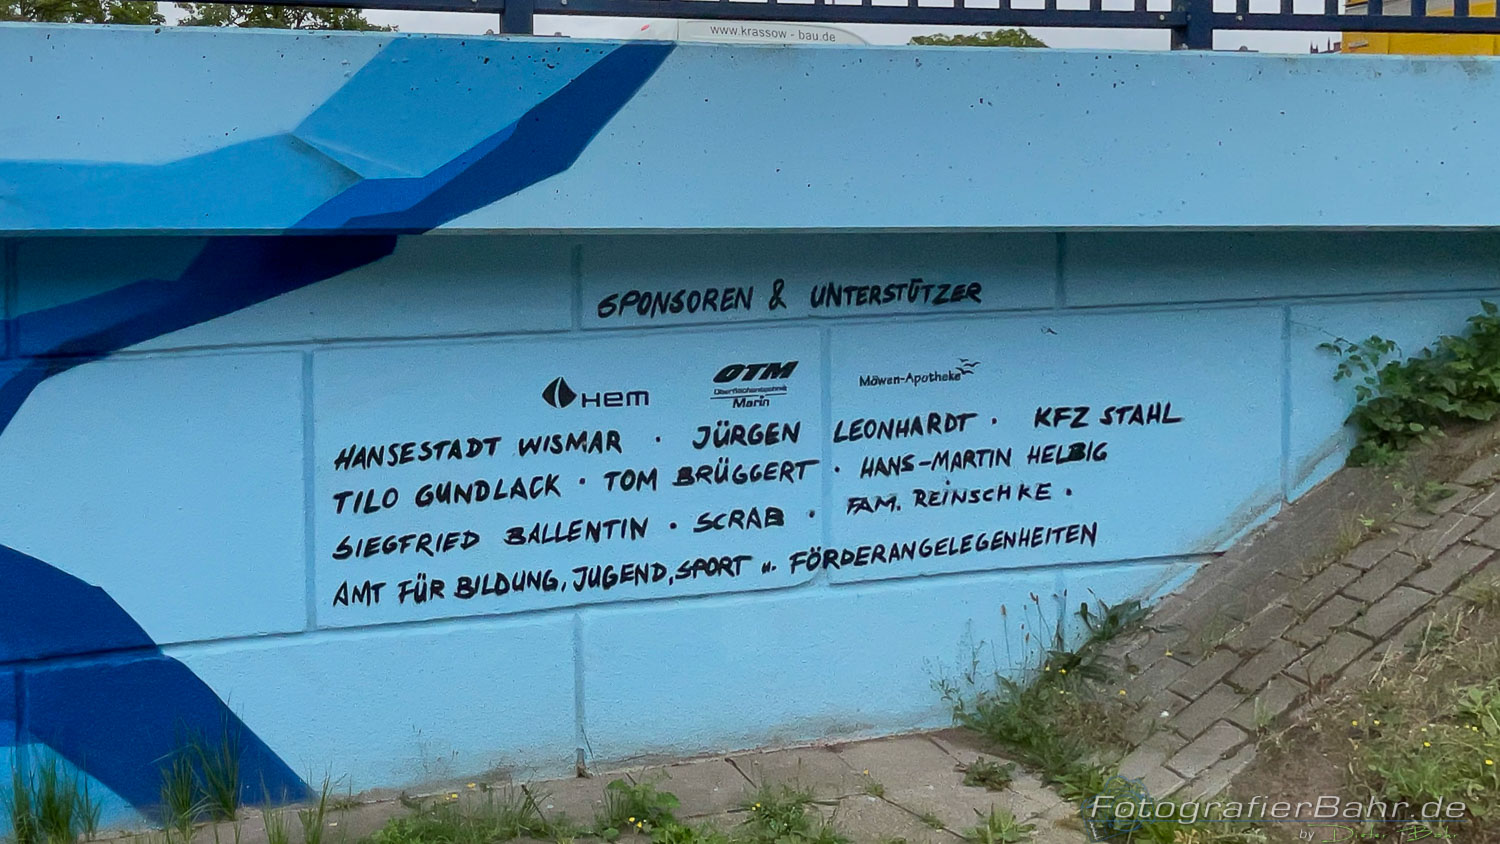 www.krassow - bau.de
SPONSOREN & UNTERSTÜTZER
HEM
OTM
Oberflächentechnik
Marin
Möwen-Apotheke
HANSESTADT WISMAR · JÜRGEN LEONHARDT · KFZ STAHL
TILO GUNDLACK · TOM BRÜGGERT · HANS-MARTIN HELBIG
SIEGFRIED BALLENTIN · SCRAB · FAM. REINSCHKE ·
AMT FÜR BILDUNG, JUGEND, SPORT u. FÖRDERANGELEGENHEITEN
FotografierBahr.de
by Dieter Bahr